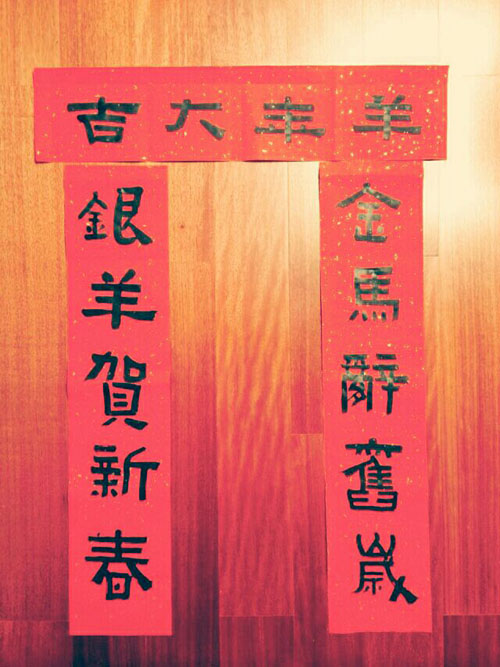 羊年大吉
金馬辭舊歲
銀羊賀新春